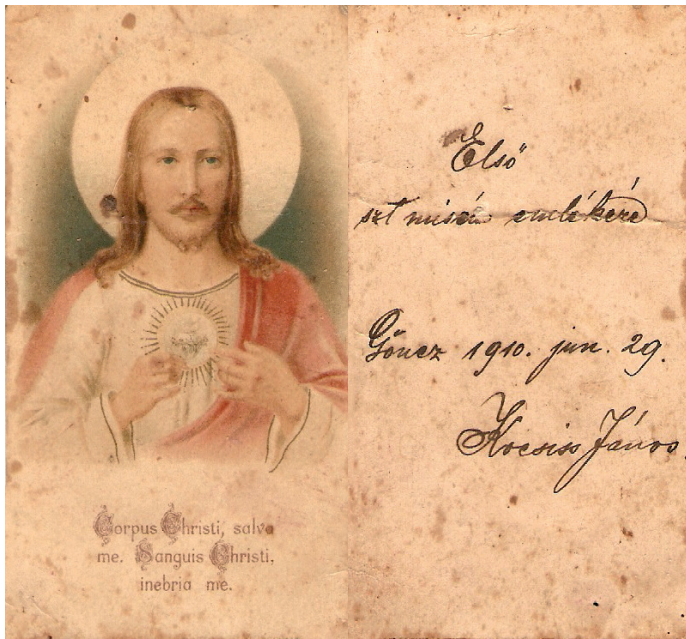 Corpus Christi, salva
me. Sanguis Christi,
inebria me.
Első
szt misém emlékére
Göncz 1910. jun. 29.
Kocsiss János